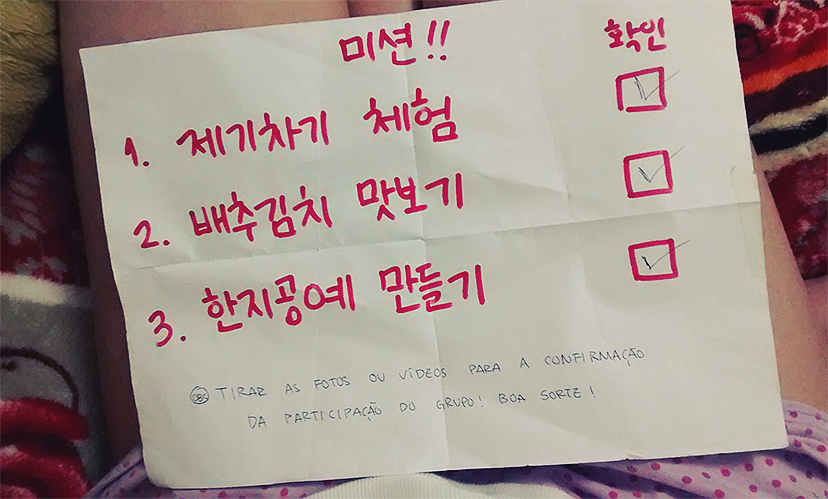 미션!! 확인
1. 제기차기 체험
2. 배추김치 맛보기
3. 한지공예 만들기
OBS TIRAR AS FOTOS OU VÍDEOS PARA A CONFIRMAÇÃO
DA PARTICIPAÇÃO DO GRUPO! BOA SORTE!